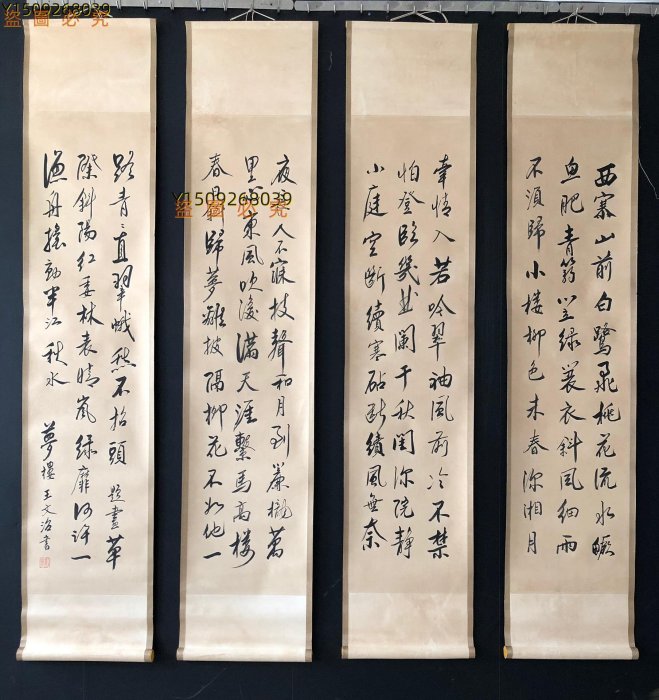 Y1509268039
盜圖必究
Y1509268039
盜圖必究
西寨山前白鷺飛桃花流水鱖
魚肥青箬笠綠蓑衣斜風細雨
不須歸小樓柳色未春深湘月
牽情入苦吟翠袖風前冷不禁
怕登臨幾曲闌干秋閨深院靜
小庭空斷續寒砧斷續風無奈
夜人不寐聲和月到簾櫳萬
里東風吹後滿天涯繫馬高樓
春歸夢難隔柳花不如他一
路青青直翠蛾愁不抬頭 題畫 草
際斜陽紅委林表晴嵐綠靡何許一
漁舟搖動半江秋水 夢樓王文治書